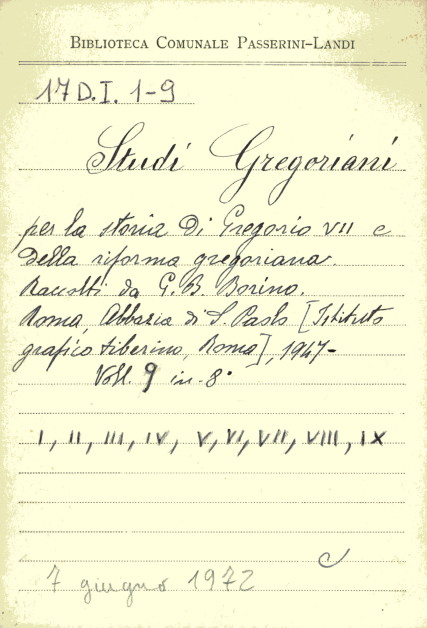 BIBLIOTECA COMUNALE PASSERINI-LANDI
17 D.I. 1-9
Studi Gregoriani
per la storia di Gregorio VII e
della riforma gregoriana.
Raccolti da G. B. Borino.
Roma, Abbazia di S. Paolo [Istituto
grafico tiberino, Roma], 1947-
Voll. 9 in-8°
I, II, III, IV, V, VI, VII, VIII, IX
7 giugno 1972